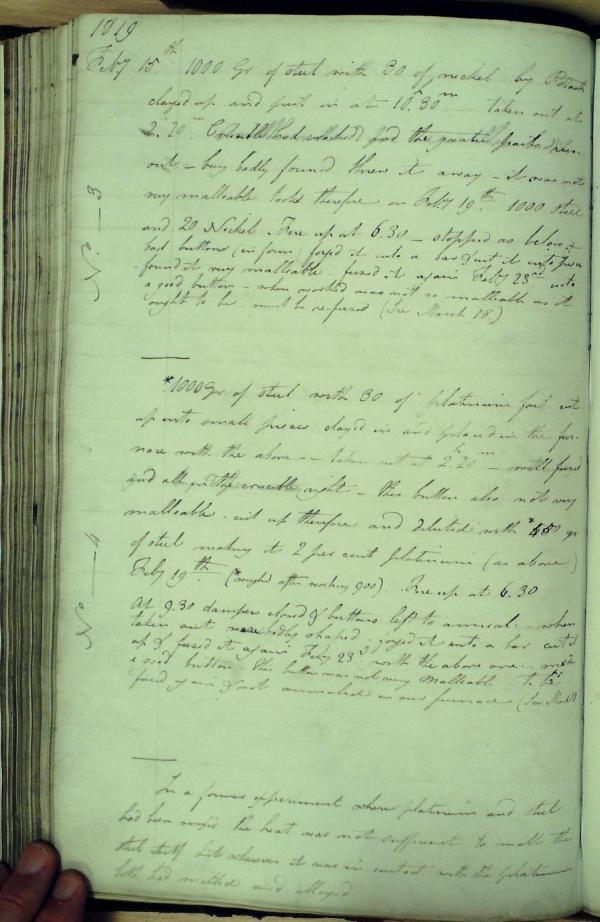 1819
Feby 15th 1000 Gr of steel with 30 of nickel by
clayed up and put in at 10h.30m taken out at
2.20m. Crucible had cracked and the
out - being badly found threw it away - it was not
very malleable therefore on Feby 19th 1000 steel
and 20 Nickel. Fire up at 6.30 - stopped as below -
bad button in form forged it into a bar & cut it into pieces
found it very malleable. fused it again Feby 23rd into
a good button - when worked was not so malleable as it
ought to be must be refused (See March 18.)
No - 3
*1000 Gr of steel with 30 of platinum foil cut
up into small pieces clayed in and placed in the fur-
nace with the above - taken out at 2h.20m - well fused
and all in the crucible right - this button also not very
malleable. cut up therefore and diluted with * gr
of steel making it 2 per cent platinum (as above)
Feby 19th (*weighed after working 900). Fire up at 6.30
At 9.30 dampers closed & buttons left to anneal - when
taken out badly shaped forged it into a bar cut it
up & fused it again Feby 23rd with the above one - made
a good button. this button was not very malleable to be
fused again & not annealed in our furnace (See March
No - 4
In a former experiment where platinum and steel
had been mixed the heat was not sufficient to melt the
steel itself but wherever it was in contact with the platinum
both had melted and alloyed